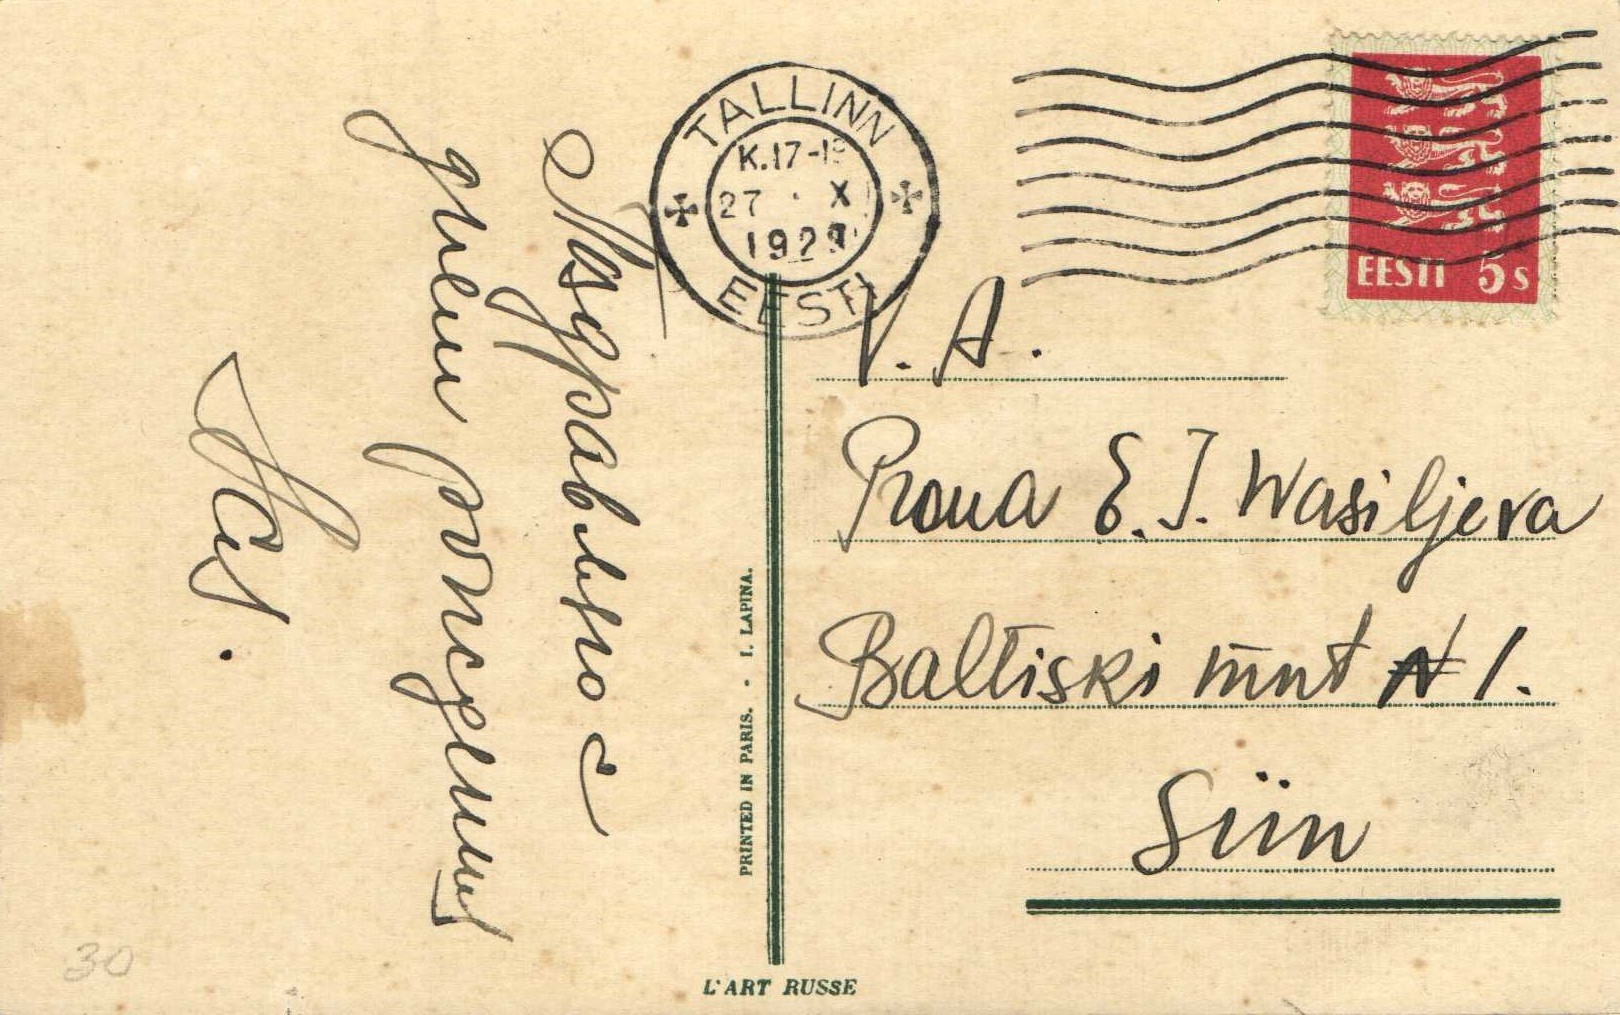 Поздравляю с
днем рождения
TALLINN
K.17-19
27 . X
1929
EESTI
EESTI 5 s
V. A.
Proua E. J. Wasiljeva
Baltiski mnt № 1.
Siin
PRINTED IN PARIS. - I. LAPINA.
L'ART RUSSE
30